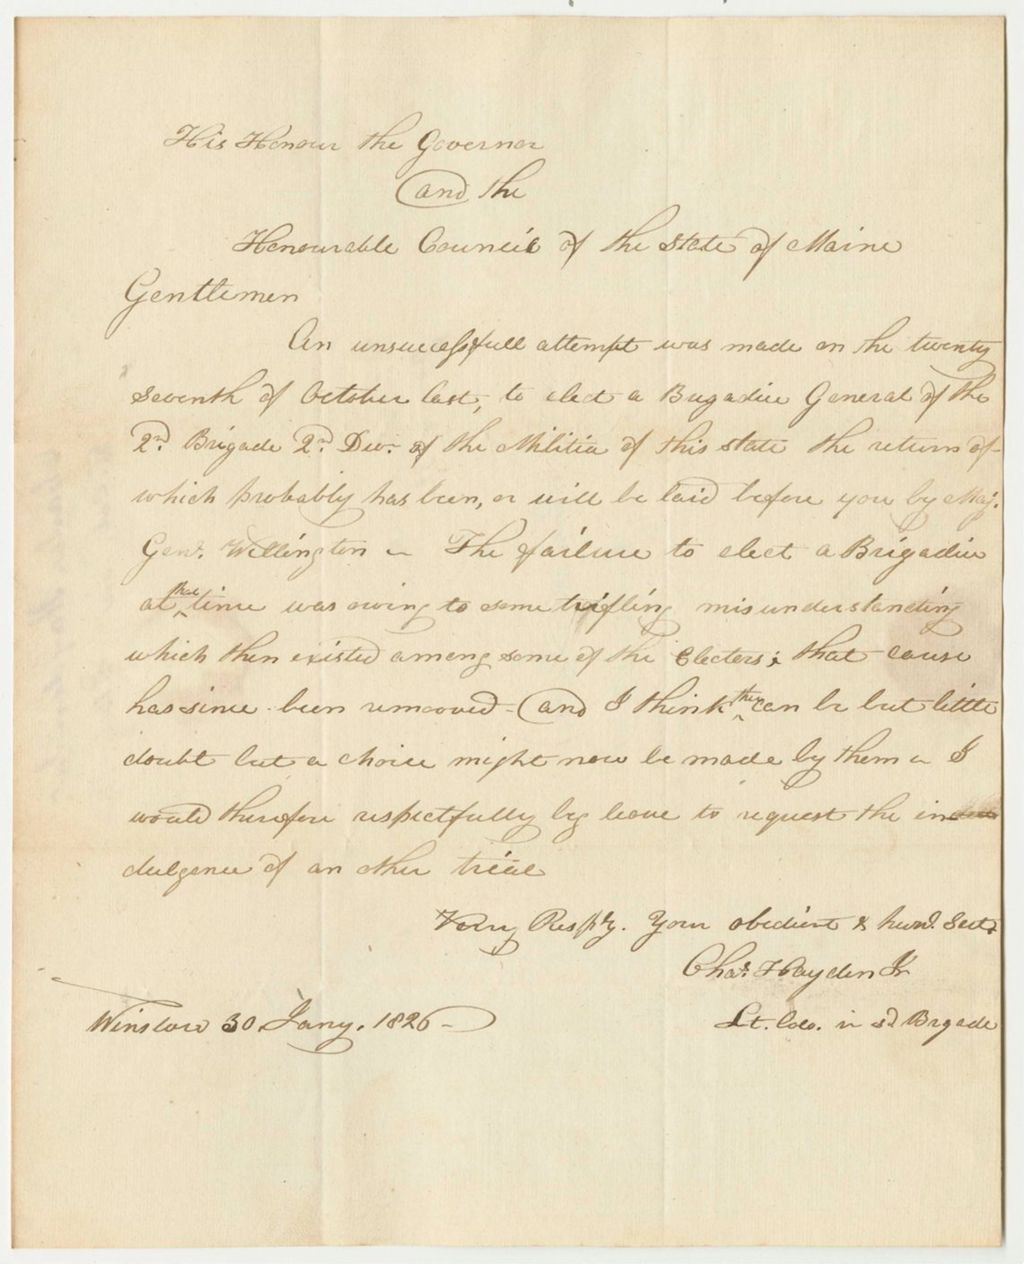 His Honour the Governor
and the
Honourable Council of the State of Maine
Gentlemen
An unsuccessfull attempt was made on the twenty
seventh of October last, to elect a Brigadier General of the
2nd. Brigade 2nd. Div. of the Militia of this state the return of
which probably has been, or will be laid before you by Maj.
Genl. Wellington — The failure to elect a Brigadier
at that time was owing to some trifling misunderstanding
which then existed among some of the Electors; that cause
has since been removed — and I think there can be but little
doubt but a choice might now be made by them — I
would therefore respectfully beg leave to request the in
dulgence of an other trial
Very Resply. Your obedient & humd. Sert.
Chas. Hayden Jr
Winslow 30 Jany. 1826 —
Lt. Colo. in sd Brgade